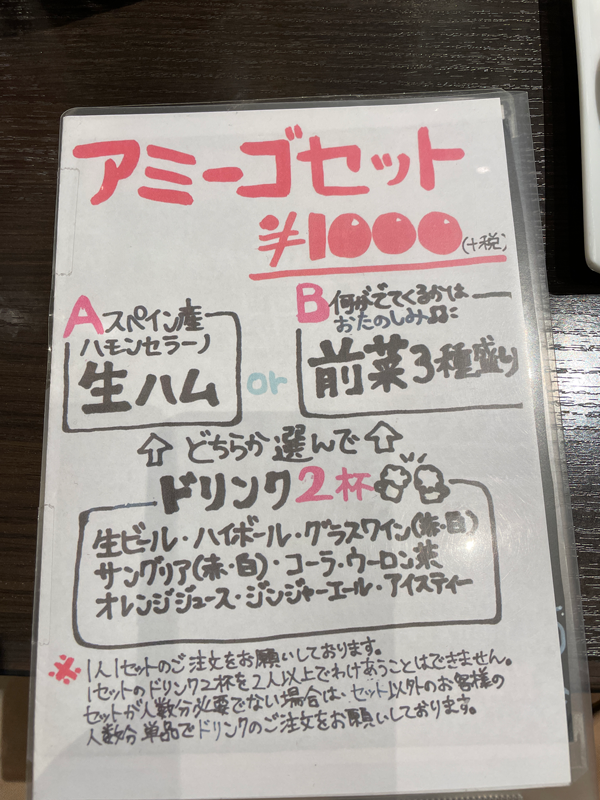 アミーゴセット
¥1000(+税)
A スペイン産
ハモンセラーノ
生ハム
or
B 何がでてくるかは
おたのしみ♫に
前菜3種盛り
⇧ どちらか選んで ⇧
ドリンク2杯
生ビール・ハイボール・グラスワイン(赤・白)
サングリア(赤・白)・コーラ・ウーロン茶
オレンジジュース・ジンジャーエール・アイスティー
※ 1人1セットのご注文をお願いしております。
1セットのドリンク2杯を2人以上でわけあうことはできません。
セットが人数分必要でない場合は、セット以外のお客様の
人数分単品でドリンクのご注文をお願いしております。